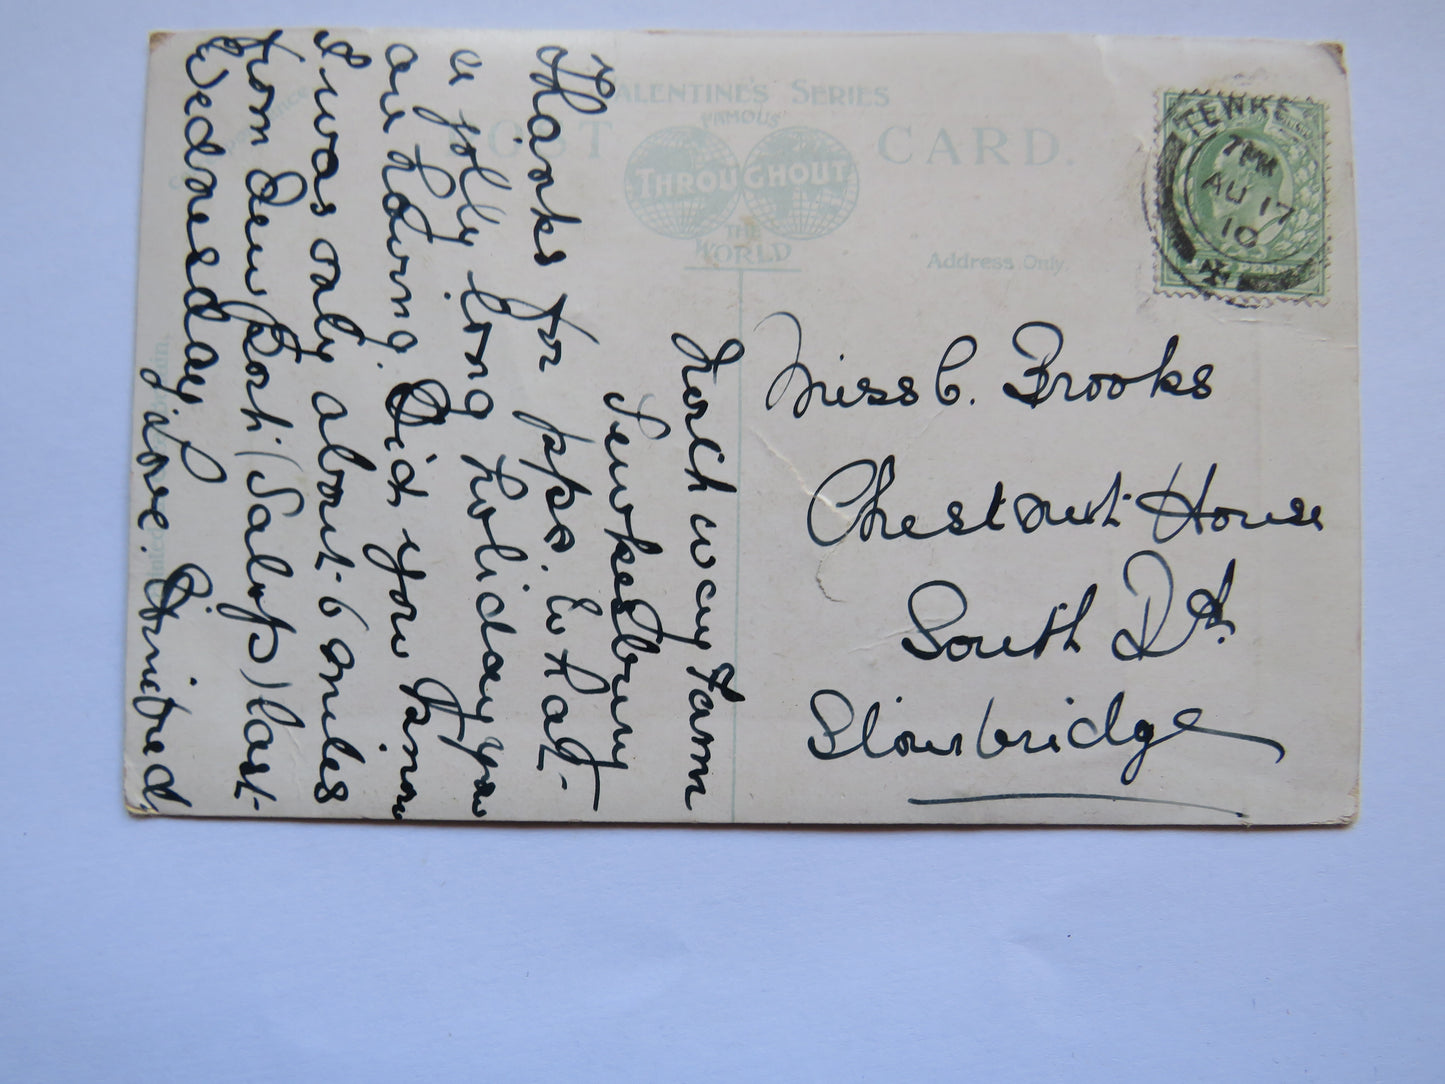 VALENTINES SERIES
FAMOUS
POST CARD.
THROUGHOUT
THE
WORLD
Address Only.
TEWKES
7 PM
AU 17
10
Miss C. Brooks
Chestnut House
South Rd.
Stourbridge
North way Farm
Tewkesbury
Thanks for pps. What
a jolly long holiday you
are having. Did you know
I was only about 6 miles
from New port (Salop) last
Wednesday
love. Winifred.